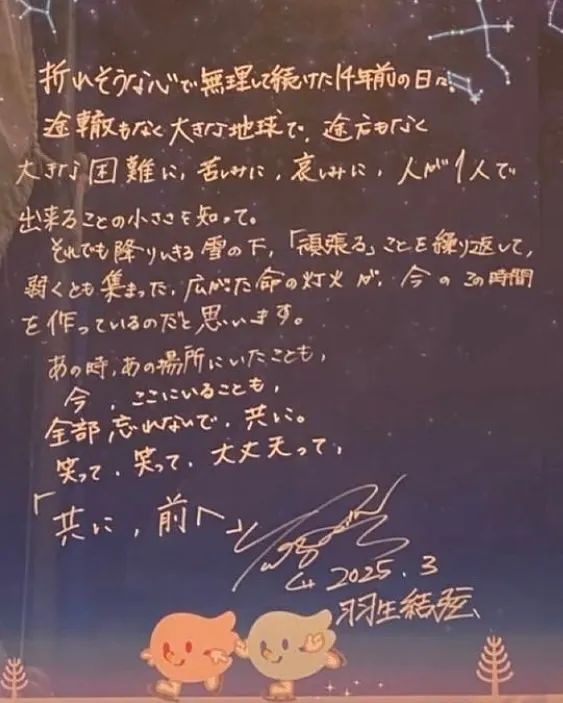 折れそうな心で無理して続けた14年前の日々。
途轍もなく大きな地球で、途方もなく
大きな困難に、苦しみに、哀しみに、人が1人で
出来ることの小ささを知って。
それでも降りしきる雪の下、「頑張る」ことを繰り返して、
弱くとも集まった、広がった命の灯火が、今のこの時間
を作っているのだと思います。
あの時、あの場所にいたことも、
今、ここにいることも、
全部忘れないで、共に。
笑って、笑って、大丈夫って、
「共に、前へ」
2025.3
羽生結弦